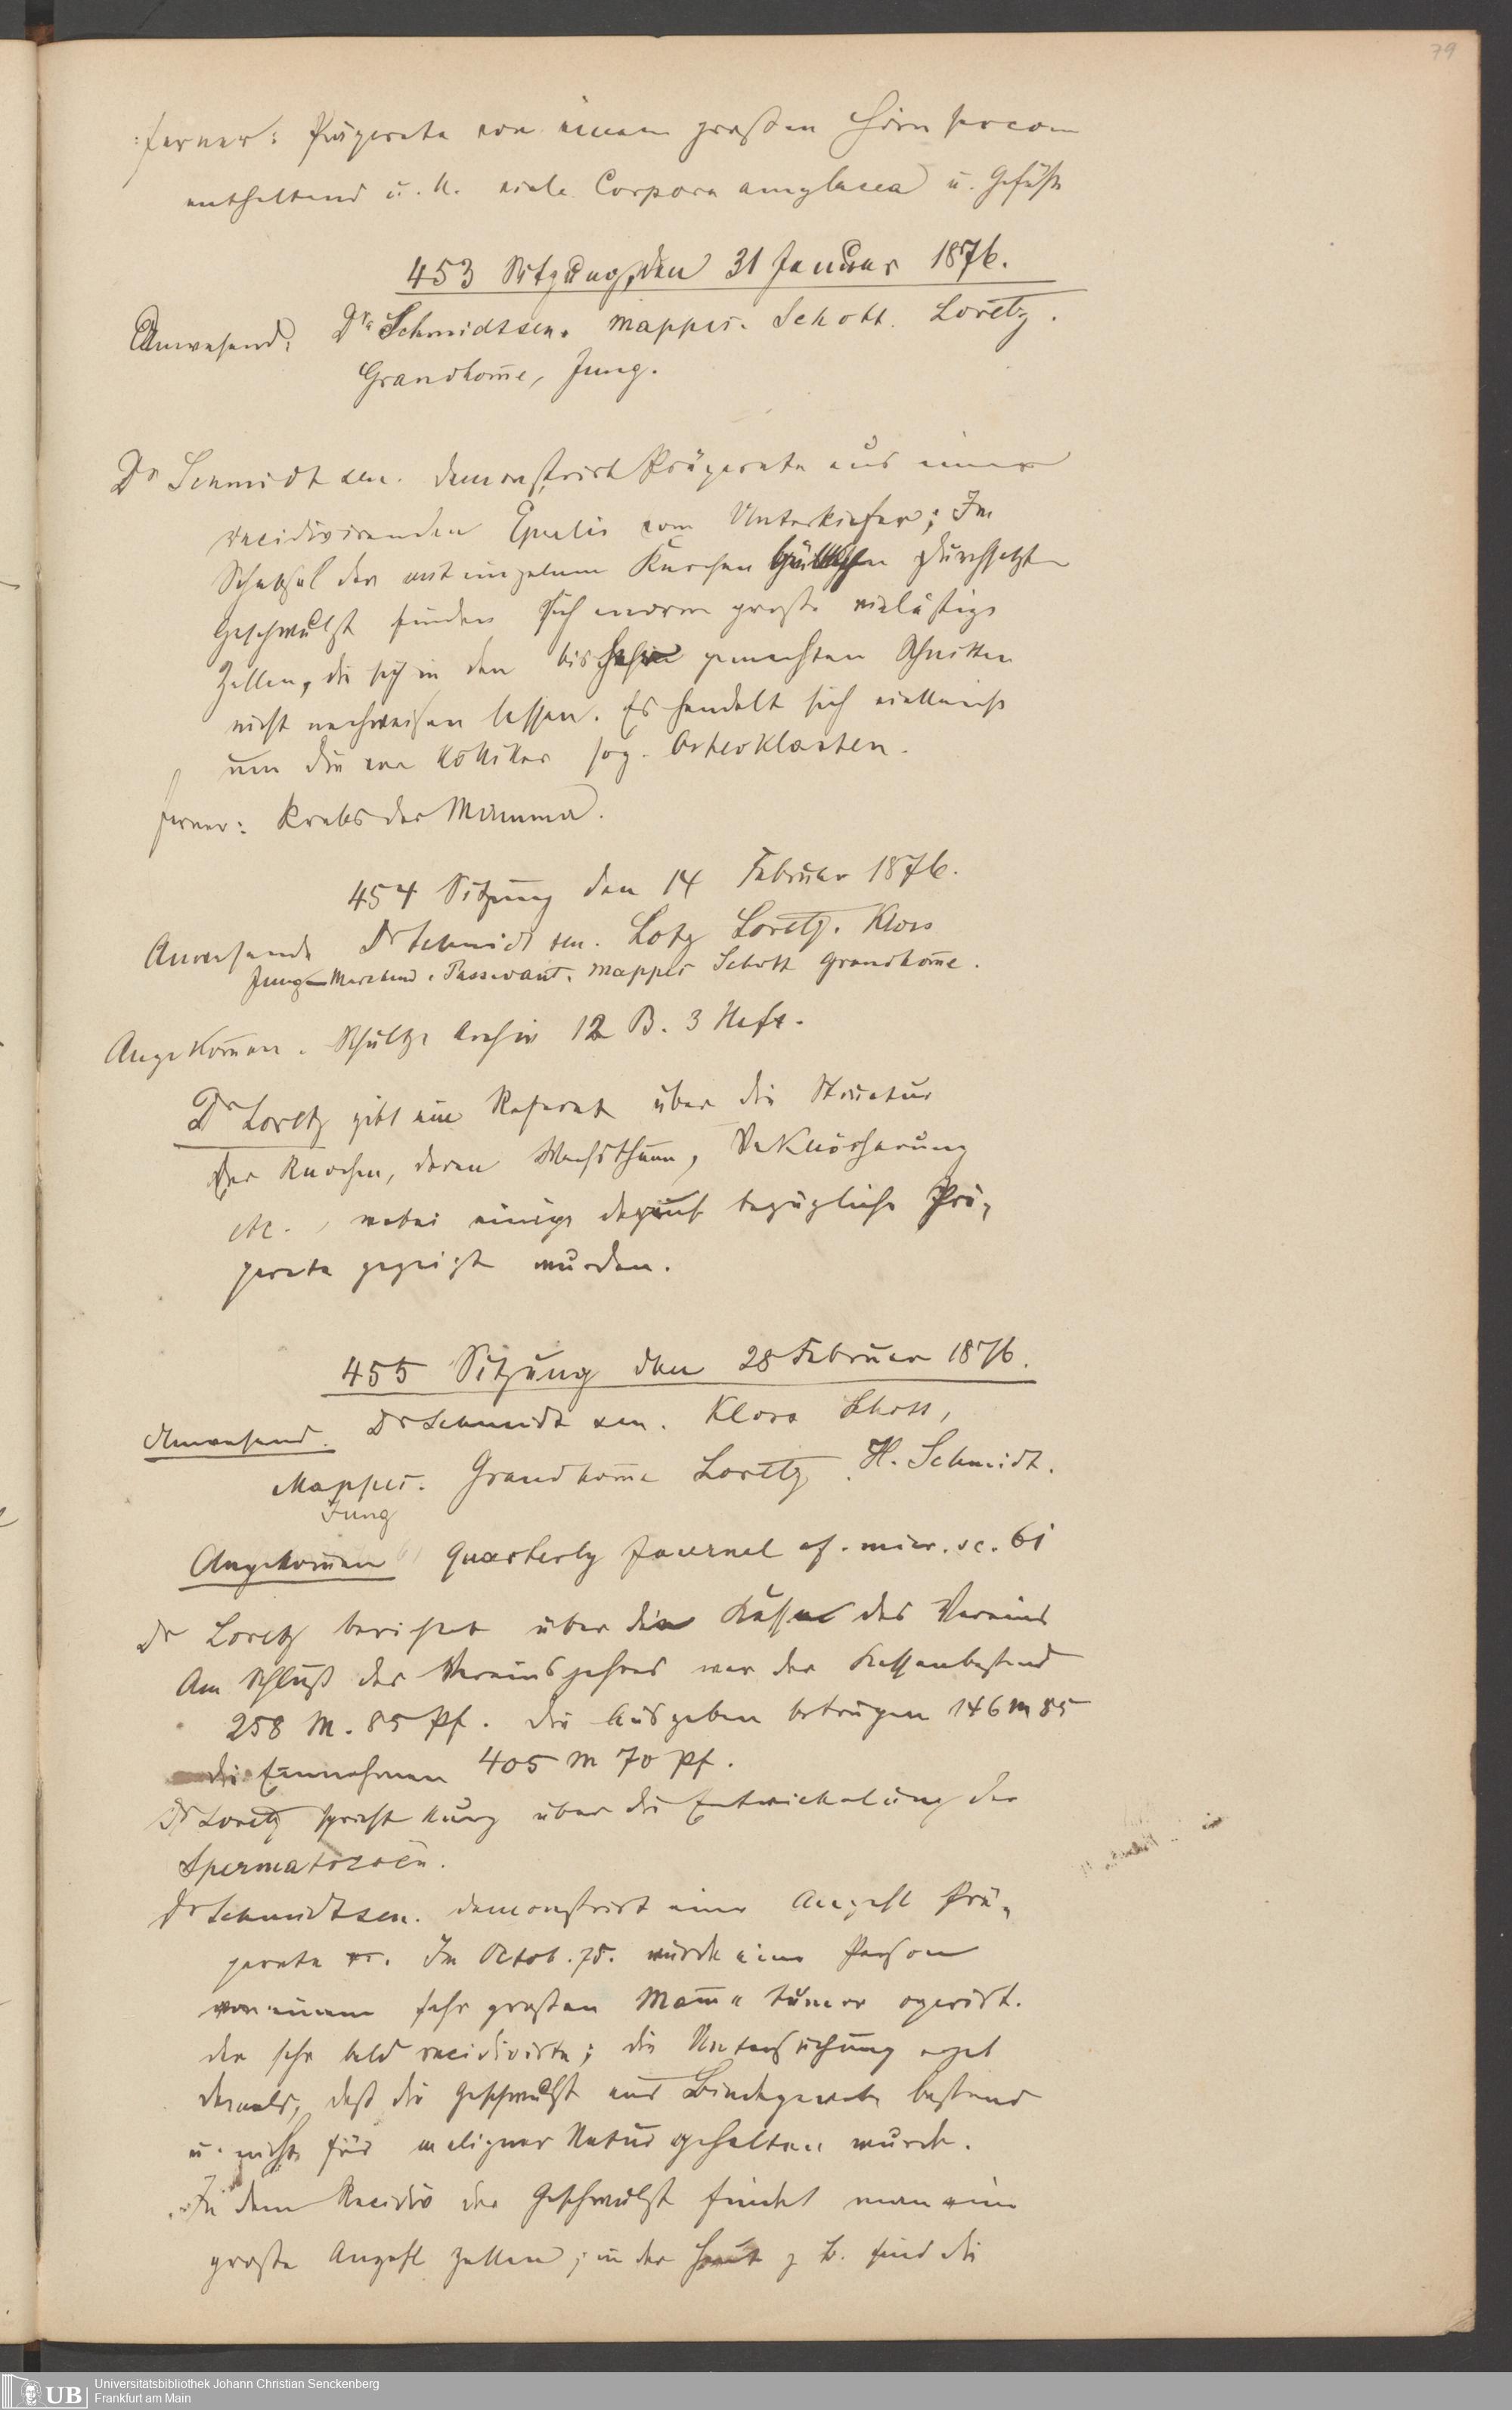 79
ferner: Präparate von einem großen Hirnsarcom
enthaltend u. A. viele Corpora amylacea u. Gefäße
453 Sitzung, den 31 Januar 1876.
Anwesend: Dr. Schmidt sen. Mappes. Schott. Loretz.
Grandhom̅e, Jung.
Dr Schmidt sen. demonstrirt Präparate aus einer
recidivirenden Epulis vom Unterkiefer; Im
Schabsel der mit einzelnen Knochen durchsetzten
Geschwulst finden sich enorm große vielästige
Zellen, die sich in den bisher gemachten Schnitten
nicht nachweisen lassen. Es handelt sich vielleicht
um die von Kölliker sog. Osteoklasten.
ferner: Krebs der Mamma.
454 Sitzung den 14 Februar 1876.
Anwesend Dr Schmidt sen. Lotz Loretz. Kloss
Jung Marchand. Passavant. Mappes Schott Grandhom̅e.
Angekom̅en. Schultze Archiv 12 B. 3 Heft.
Dr Loretz gibt ein Referat über die Structur
der Knochen, deren Wachsthum, Verknöcherung
etc., wobei einige darauf bezügliche Prä-
parate gezeigt wurden.
455 Sitzung den 28 Februar 1876.
Anwesend. Dr Schmidt sen. Kloss Schott,
Mappes. Grandhom̅e Loretz. H. Schmidt.
Jung
Angekom̅en Quarterly Journal of. micr. sc. 61
Dr Loretz berichtet über die Kasse des Vereins
Am Schluß des Vereinsjahres war der Kassenbestand
258 M. 85 Pf. die Ausgaben betrugen 146 M 85
die Einnahmen 405 M 70 Pf.
Dr Loretz spricht kurz über die Entwickelung der
Spermatozoën.
Dr Schmidt sen. demonstrirt eine Anzahl Prä-
parate Im Octob. 75. wurde eine Person
von einem sehr großen Mam̅a tumor operirt.
der sehr bald recidivirte; die Untersuchung ergab
damals, daß die Geschwulst aus Bindegewebe bestand
u. nicht für maligner Natur gehalten wurde.
In dem Recidiv der Geschwulst findet man eine
große Anzahl Zellen; in der Haut z B. sind die
UB Universitätsbibliothek Johann Christian Senckenberg
Frankfurt am Main